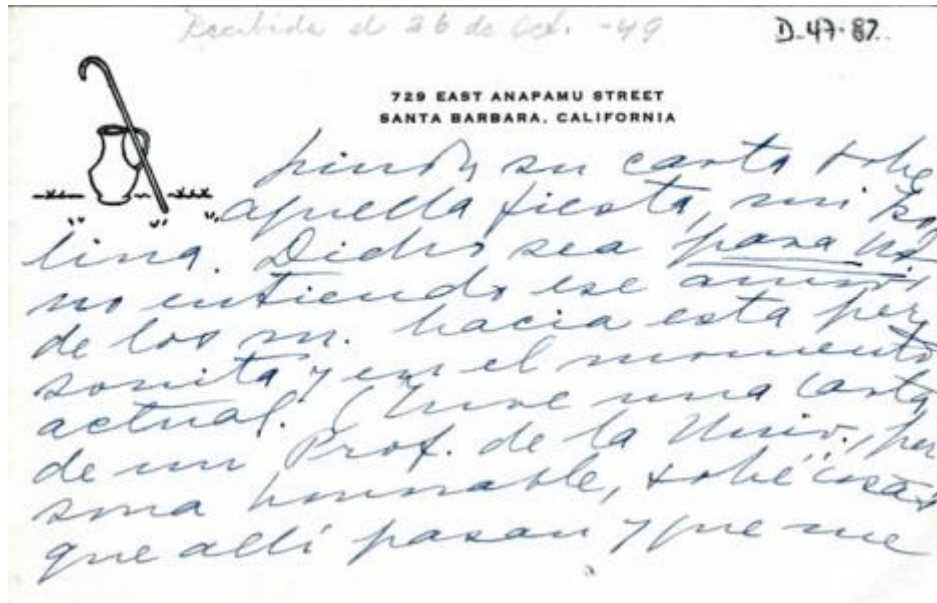 Recibida el 26 de Oct. -49
D-47-87.
729 EAST ANAPAMU STREET
SANTA BARBARA, CALIFORNIA
su carta sobre
aquella fiesta, mi
lina. Dicho sea para
no entiendo ese
de los m. hacia esta per
sonita y en el momento
actual. (Tuve una carta
de un Prof. de la Univ., per
sona honorable, sobre cosas
que allí pasan y que me